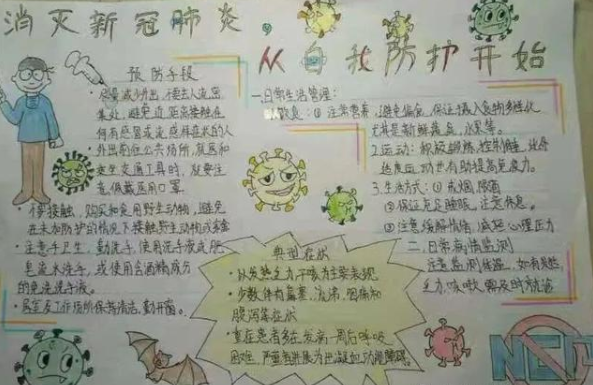 消灭新冠肺炎，
从自我防护开始
预防手段
• 尽量减少外出，不要去人流密
集处，避免近距离接触任
何有感冒或流感样症状的人
• 外出前往公共场所，就医和
乘坐交通工具时，要注
意佩戴医用口罩
• 不要接触，购买和食用野生动物，避免
在未加防护的情况下接触野生动物或禽
• 注意手卫生，勤洗手，使用洗手液或肥
皂流水洗手，或使用含酒精成分
的免洗洗手液。
• 居室及工作场所保持清洁，勤开窗。
典型症状
• 以发热乏力干咳为主要表现
• 少数伴有鼻塞，流涕，咽痛和
腹泻等症状
• 重症患者多在发病一周后呼吸
困难，严重者进展为
一.日常生活管理：
饮食：① 注意营养，避免偏食，保证摄入食物多样化
尤其是新鲜蔬菜，水果等。
2.运动：积极锻炼，控制体重，
适度运动也有助提高免疫力。
3.生活方式：① 戒烟，限酒
② 保证充足睡眠，注意休息。
③ 注意缓解情绪，减轻心理压力
二.日常病情监测
注意监测体温，如有发热，
乏力，咳嗽，需及时就诊